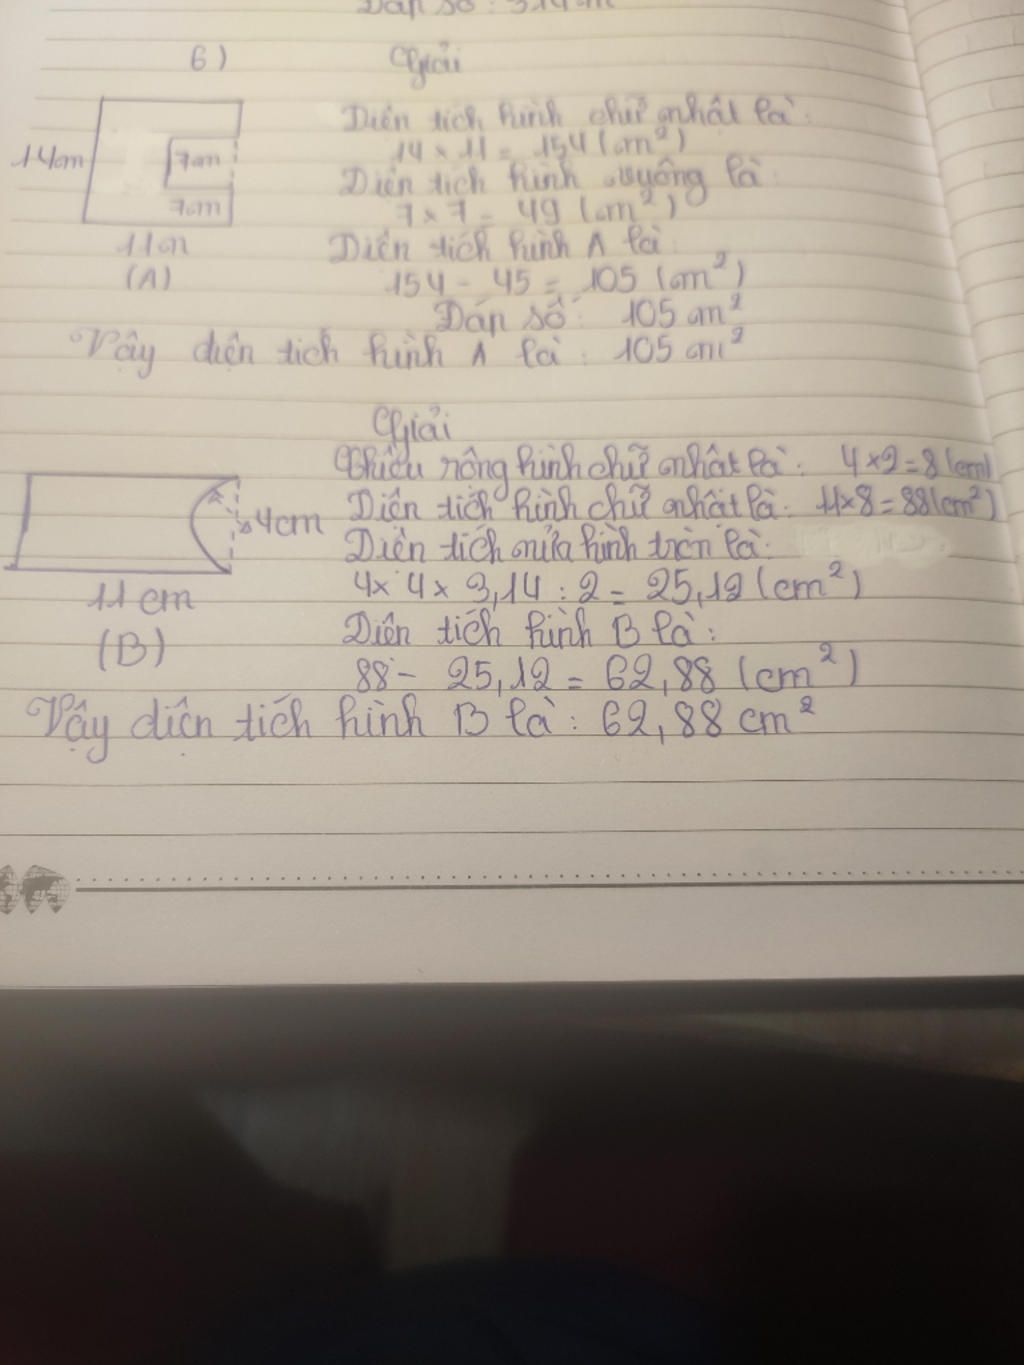 Đáp số : 3,14 m
6)
Giải
14cm
7cm
7cm
11cm
(A)
Diện tích hình chữ nhật là:
14 × 11 = 154 (cm²)
Diện tích hình vuông là:
7 × 7 = 49 (cm²)
Diện tích hình A là:
154 - 45 = 105 (cm²)
Đáp số: 105 cm²
Vậy diện tích hình A là : 105 cm²
Giải
4cm
11cm
(B)
Chiều rộng hình chữ nhật là: 4×2=8(cm)
Diện tích hình chữ nhật là: 11×8=88(cm²)
Diện tích nửa hình tròn là:
4× 4 × 3,14 : 2 = 25,12 (cm²)
Diện tích hình B là:
88 - 25,12 = 62,88 (cm²)
Vậy diện tích hình B là : 62,88 cm²